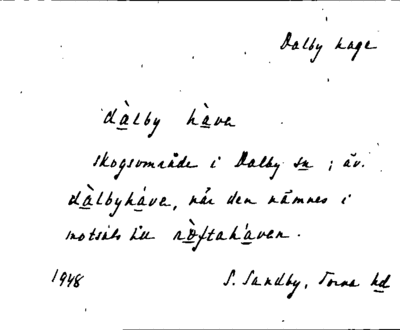 Dalby hage
dàlby hàva
skogsområde i Dalby sn ; äv.
dàlbyháva, när den nämnes i
motsats till röftaháven.
1948 S. Sandby, Torna hd